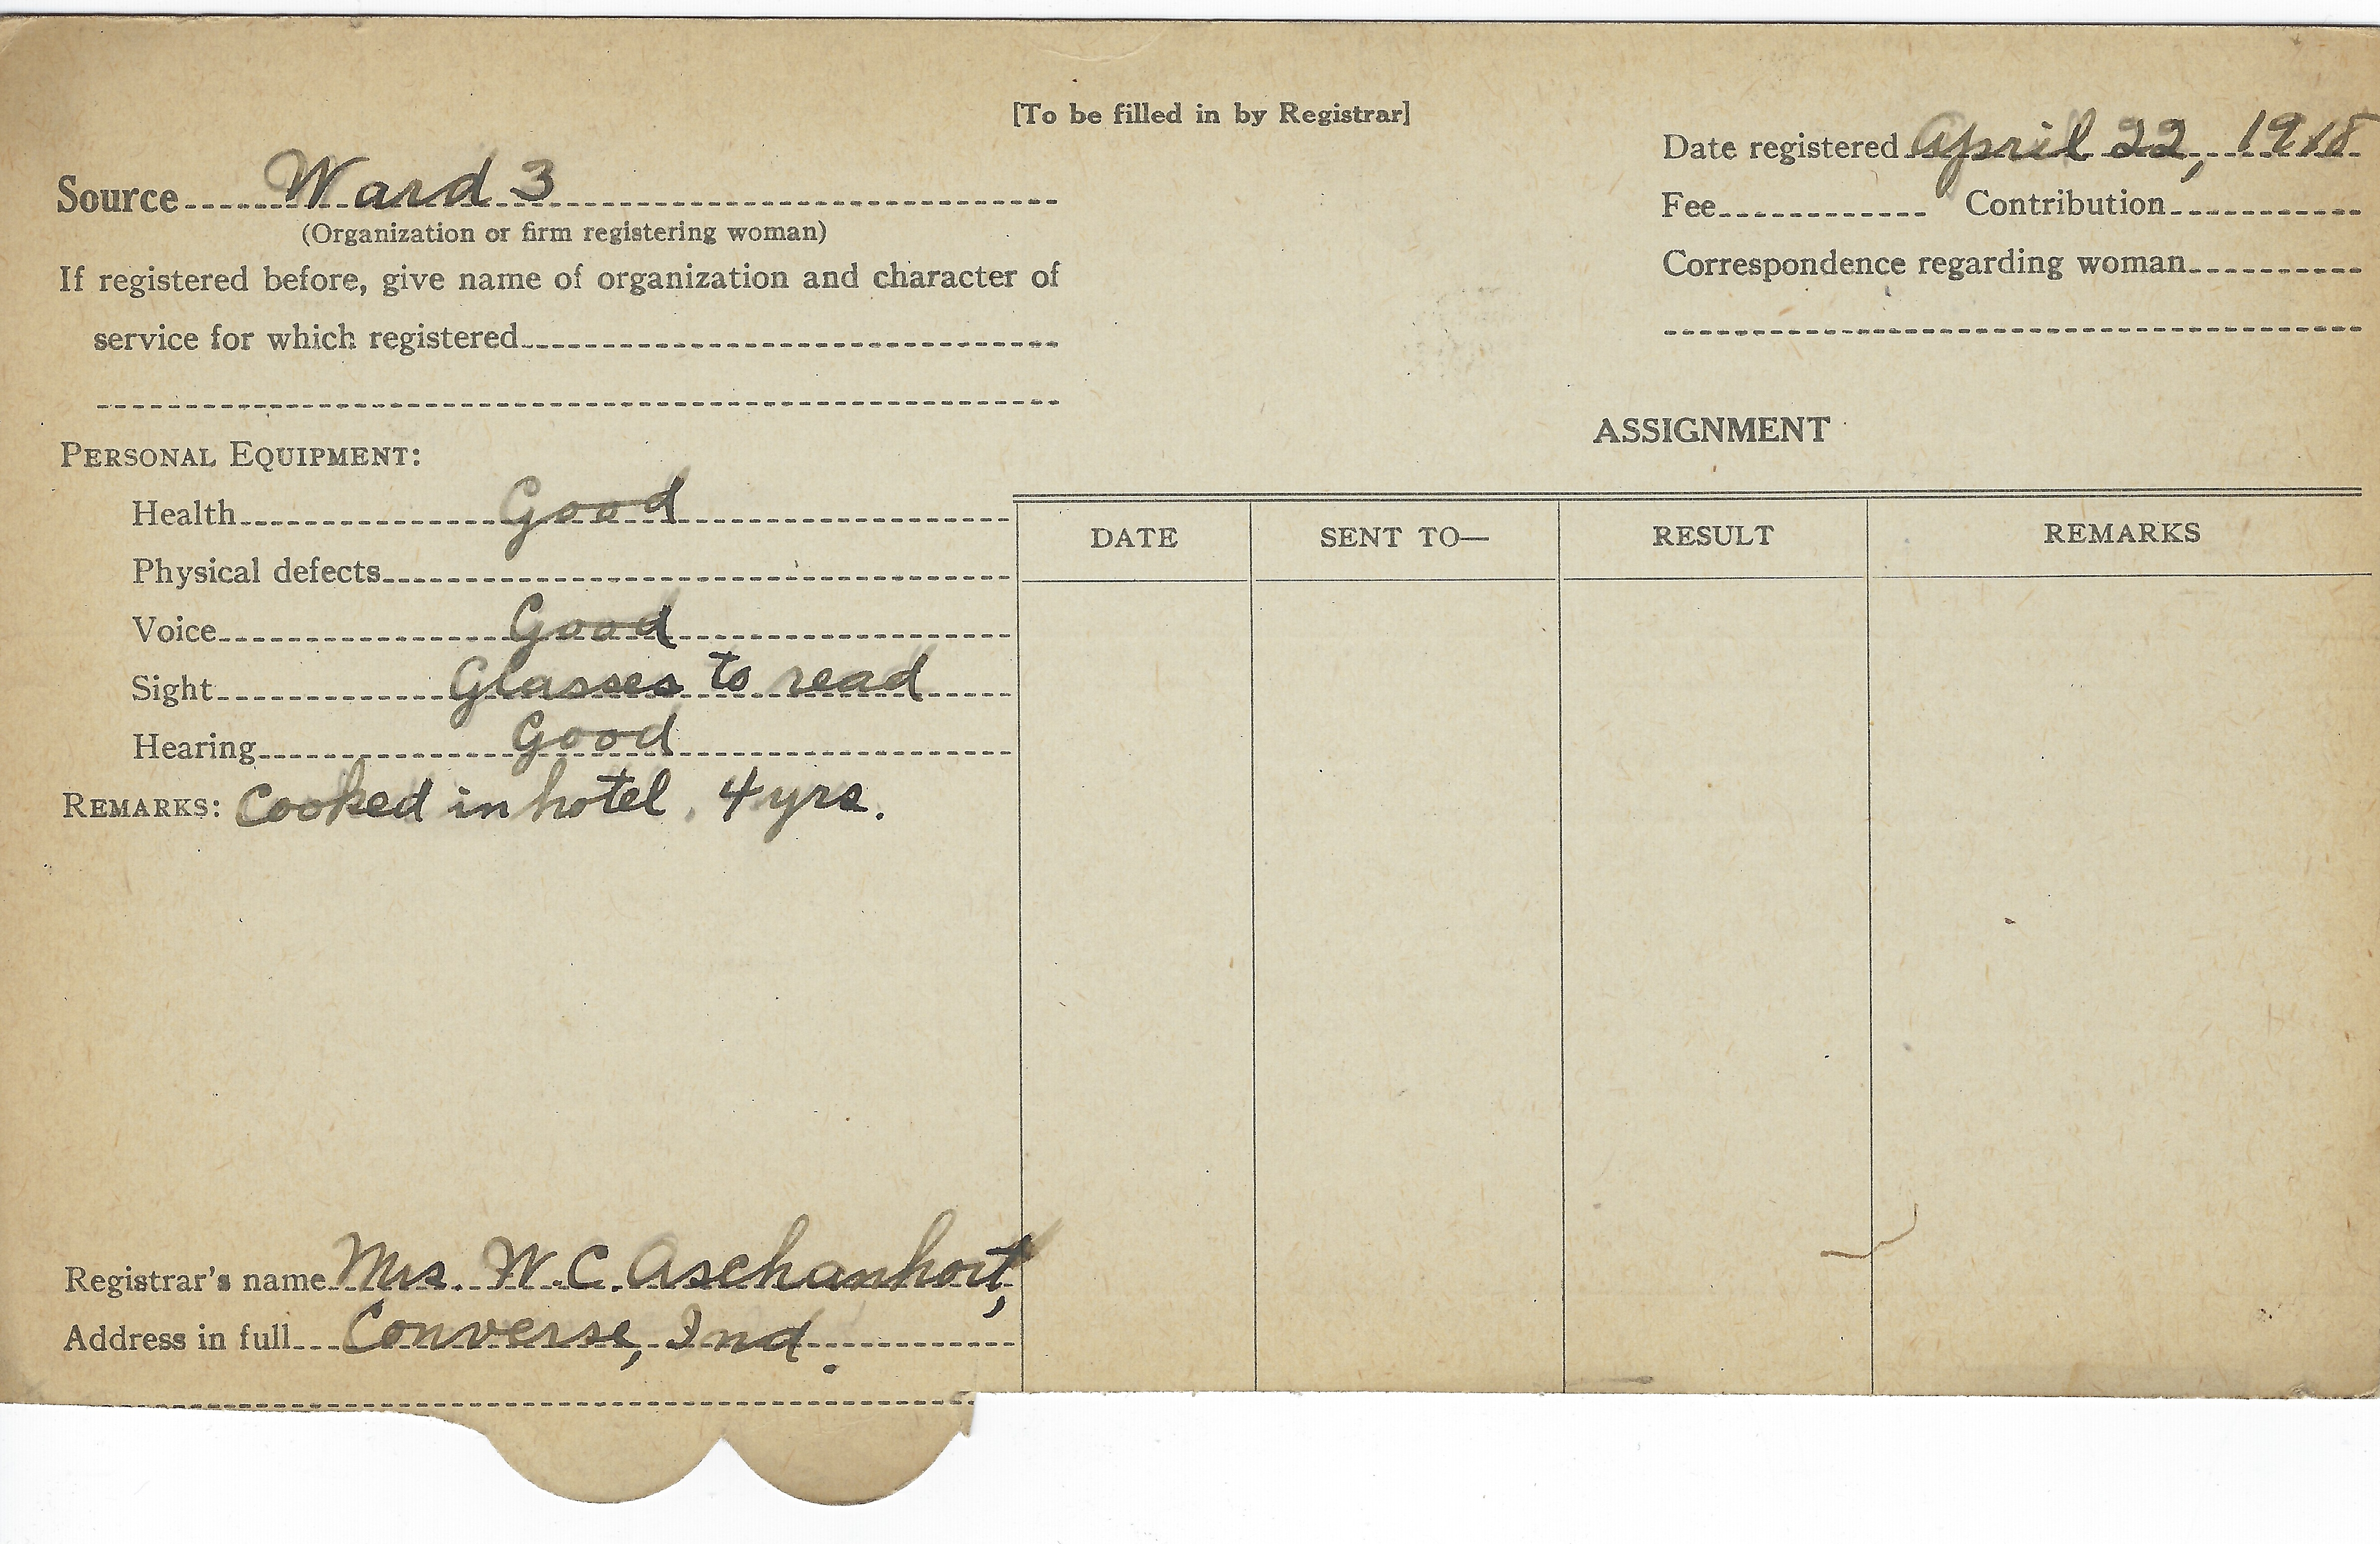 [To be filled in by Registrar]
Date registered April 22, 1918
Source Ward 3
(Organization or firm registering woman)
Fee Contribution
If registered before, give name of organization and character of
service for which registered
Correspondence regarding woman
PERSONAL EQUIPMENT:
Health Good
Physical defects
Voice Good
Sight Glasses to read
Hearing Good
REMARKS: Cooked in hotel. 4 yrs.
ASSIGNMENT
DATE SENT TO— RESULT REMARKS
Registrar's name Mrs. W.C. Aschanhort,
Address in full Converse, Ind.